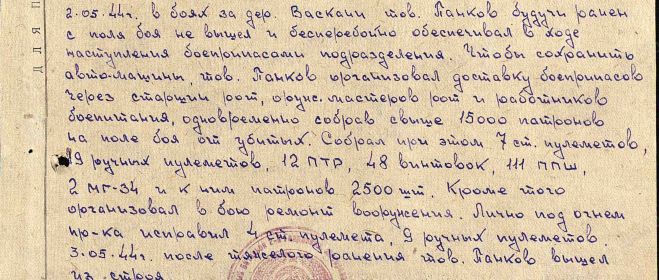 2.05.44г. в боях за дер. Васкани тов. Панков будучи ранен
с поля боя не вышел и бесперебойно обеспечивал в ходе
наступления боеприпасами подразделения. Чтобы сохранить
автомашины, тов. Панков организовал доставку боеприпасов
через старшин рот, оруж. мастеров рот и работников
боепитания, одновременно собрав свыше 15000 патронов
на поле боя от убитых. Собрал при этом 7 ст. пулеметов,
19 ручных пулеметов, 12 ПТР, 48 винтовок, 111 ППШ,
2 МГ-34 и к ним патронов 2500 шт. Кроме того
организовал в бою ремонт вооружения. Лично под огнем
пр-ка исправил 4 ст. пулемета, 9 ручных пулеметов.
3.05.44г. после тяжелого ранения тов. Панков вышел
из строя